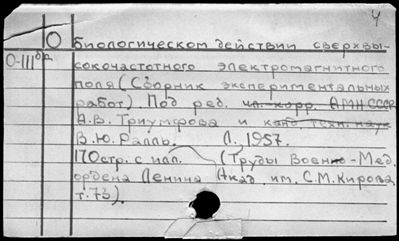 Ч
О биологическом действии сверхвы-
О-III бф сокочастотного электромагнитного
поля (Сборник экспериментальных
работ). Под ред. чл-корр. АМН СССР
А.В. Триумфова и канд техн. наук
В.Ю. Ралль. Л. 1957.
170стр. с илл. (Труды Военно-Мед.
ордена Ленина Акад. им. С.М. Кирова,
т.73).